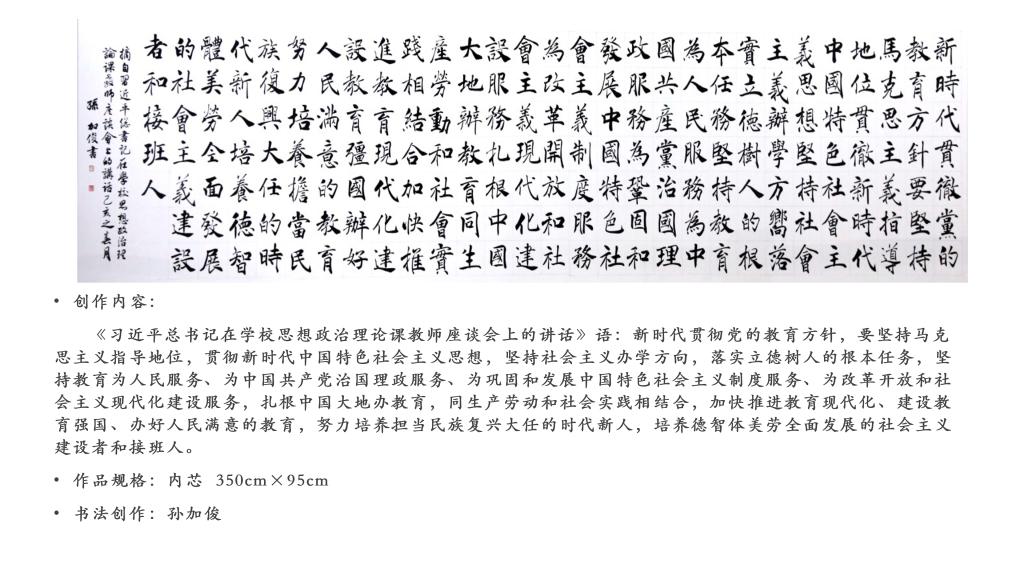 新時代貫徹黨的
教育方針要堅持
馬克思主義指導
地位貫徹新時代
中國特色社會主
義思想堅持社會
主義辦學方嚮落
實立德樹人的根
本任務堅持教育
為人民服務為中
國共產黨治國理
政服務為鞏固和
發展中國特色社
會主義制度服務
為改革開放和社
會主義現代化建
設服務扎根中國
大地辦教育同生
產勞動和社會實
踐相結合加快推
進教育現代化建
設教育彊國辦好
人民滿意的教育
努力培養擔當民
族復興大任的時
代新人培養德智
體美勞全面發展
的社會主義建設
者和接班人
摘自習近平總書記在學校思想政治理
論課教師座談會上的講話己亥之春月
孫加俊書
• 创作内容：
《习近平总书记在学校思想政治理论课教师座谈会上的讲话》语：新时代贯彻党的教育方针，要坚持马克
思主义指导地位，贯彻新时代中国特色社会主义思想，坚持社会主义办学方向，落实立德树人的根本任务，坚
持教育为人民服务、为中国共产党治国理政服务、为巩固和发展中国特色社会主义制度服务、为改革开放和社
会主义现代化建设服务，扎根中国大地办教育，同生产劳动和社会实践相结合，加快推进教育现代化、建设教
育强国、办好人民满意的教育，努力培养担当民族复兴大任的时代新人，培养德智体美劳全面发展的社会主义
建设者和接班人。
• 作品规格：内芯 350cm×95cm
• 书法创作：孙加俊